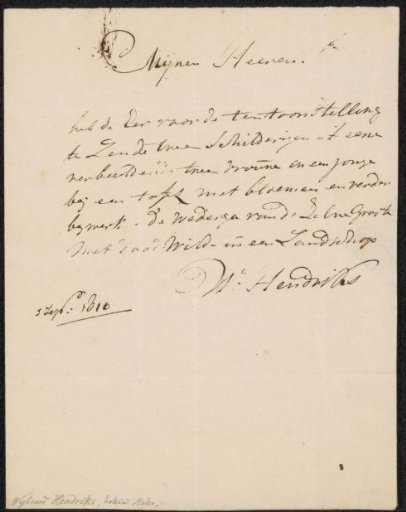 Mijnen Heeren.
heb de Eer voor de tentoonstelling
te Zende twee Schilderijen - t eene
verbeeldende twee vrouwe en een jonge
bij een tafel met bloemen en verder
bywerk - de wederga van de Zelve Groote
met dood Wild - in een Landschap
Ws Hendriks
5 Sept: 1810
Wybrand Hendriks,